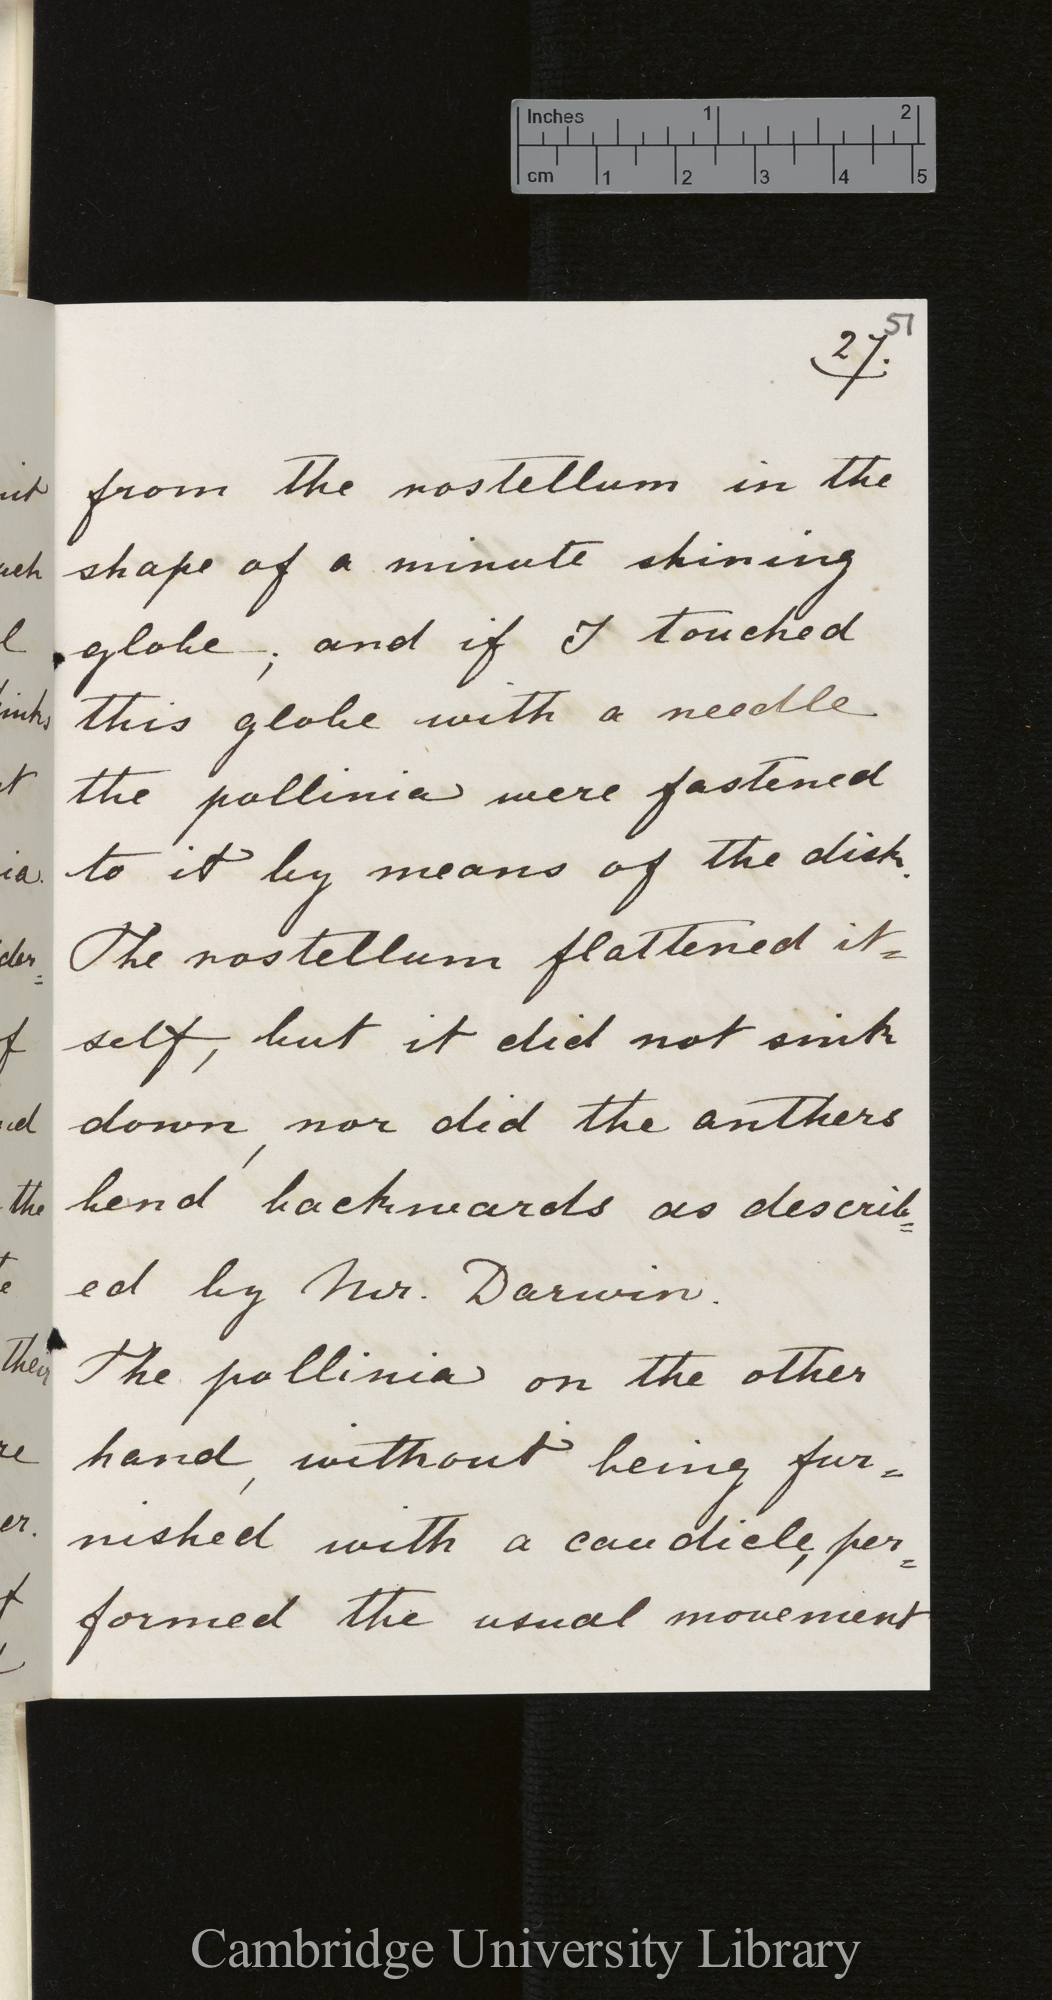 Inches 1 2
cm 1 2 3 4 5
51
27.
from the rostellum in the
shape of a minute shining
globe; and if I touched
this globe with a needle
the pollinia were fastened
to it by means of the disk.
The rostellum flattened it=
self, but it did not sink
down, nor did the anthers
bend backwards as describ=
ed by Mr. Darwin.
The pollinia on the other
hand, without being fur=
nished with a caudicle, per=
formed the usual movement
Cambridge University Library